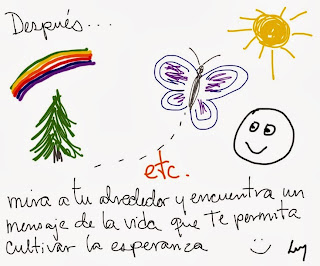 Después....
etc.
mira a tu alrededor y encuentra un
mensaje de la vida que te permita
cultivar la esperanza